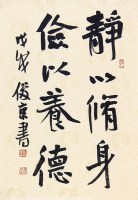 靜以脩身
儉以養德
戊戌 俊京書